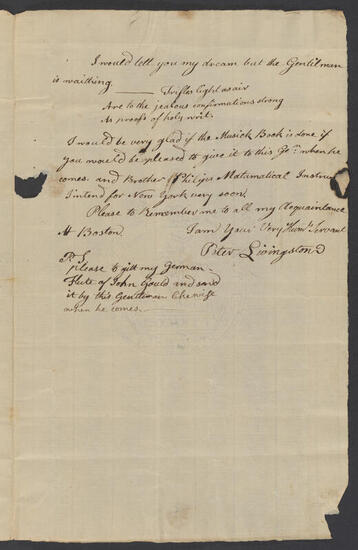 I would tell you my dream but the Gentelman
is waidring —— Trifles light as air
Are to the jealous confirmations strong
As proofs of holy writ.
I would be very glad if the Musick Book is done if
you would be pleased to give it to this Ge:n when he
comes. and Brother Philips Matumatical Instru
I intend for New York very soon.
Please to Remember me to all my Acquaintance
At Boston. I am Your Very Hum: Servant
Peter Livingston
P. S
please to gitt my German
Flute of John Gould and send
it by this Gentleman likewise
when he comes.